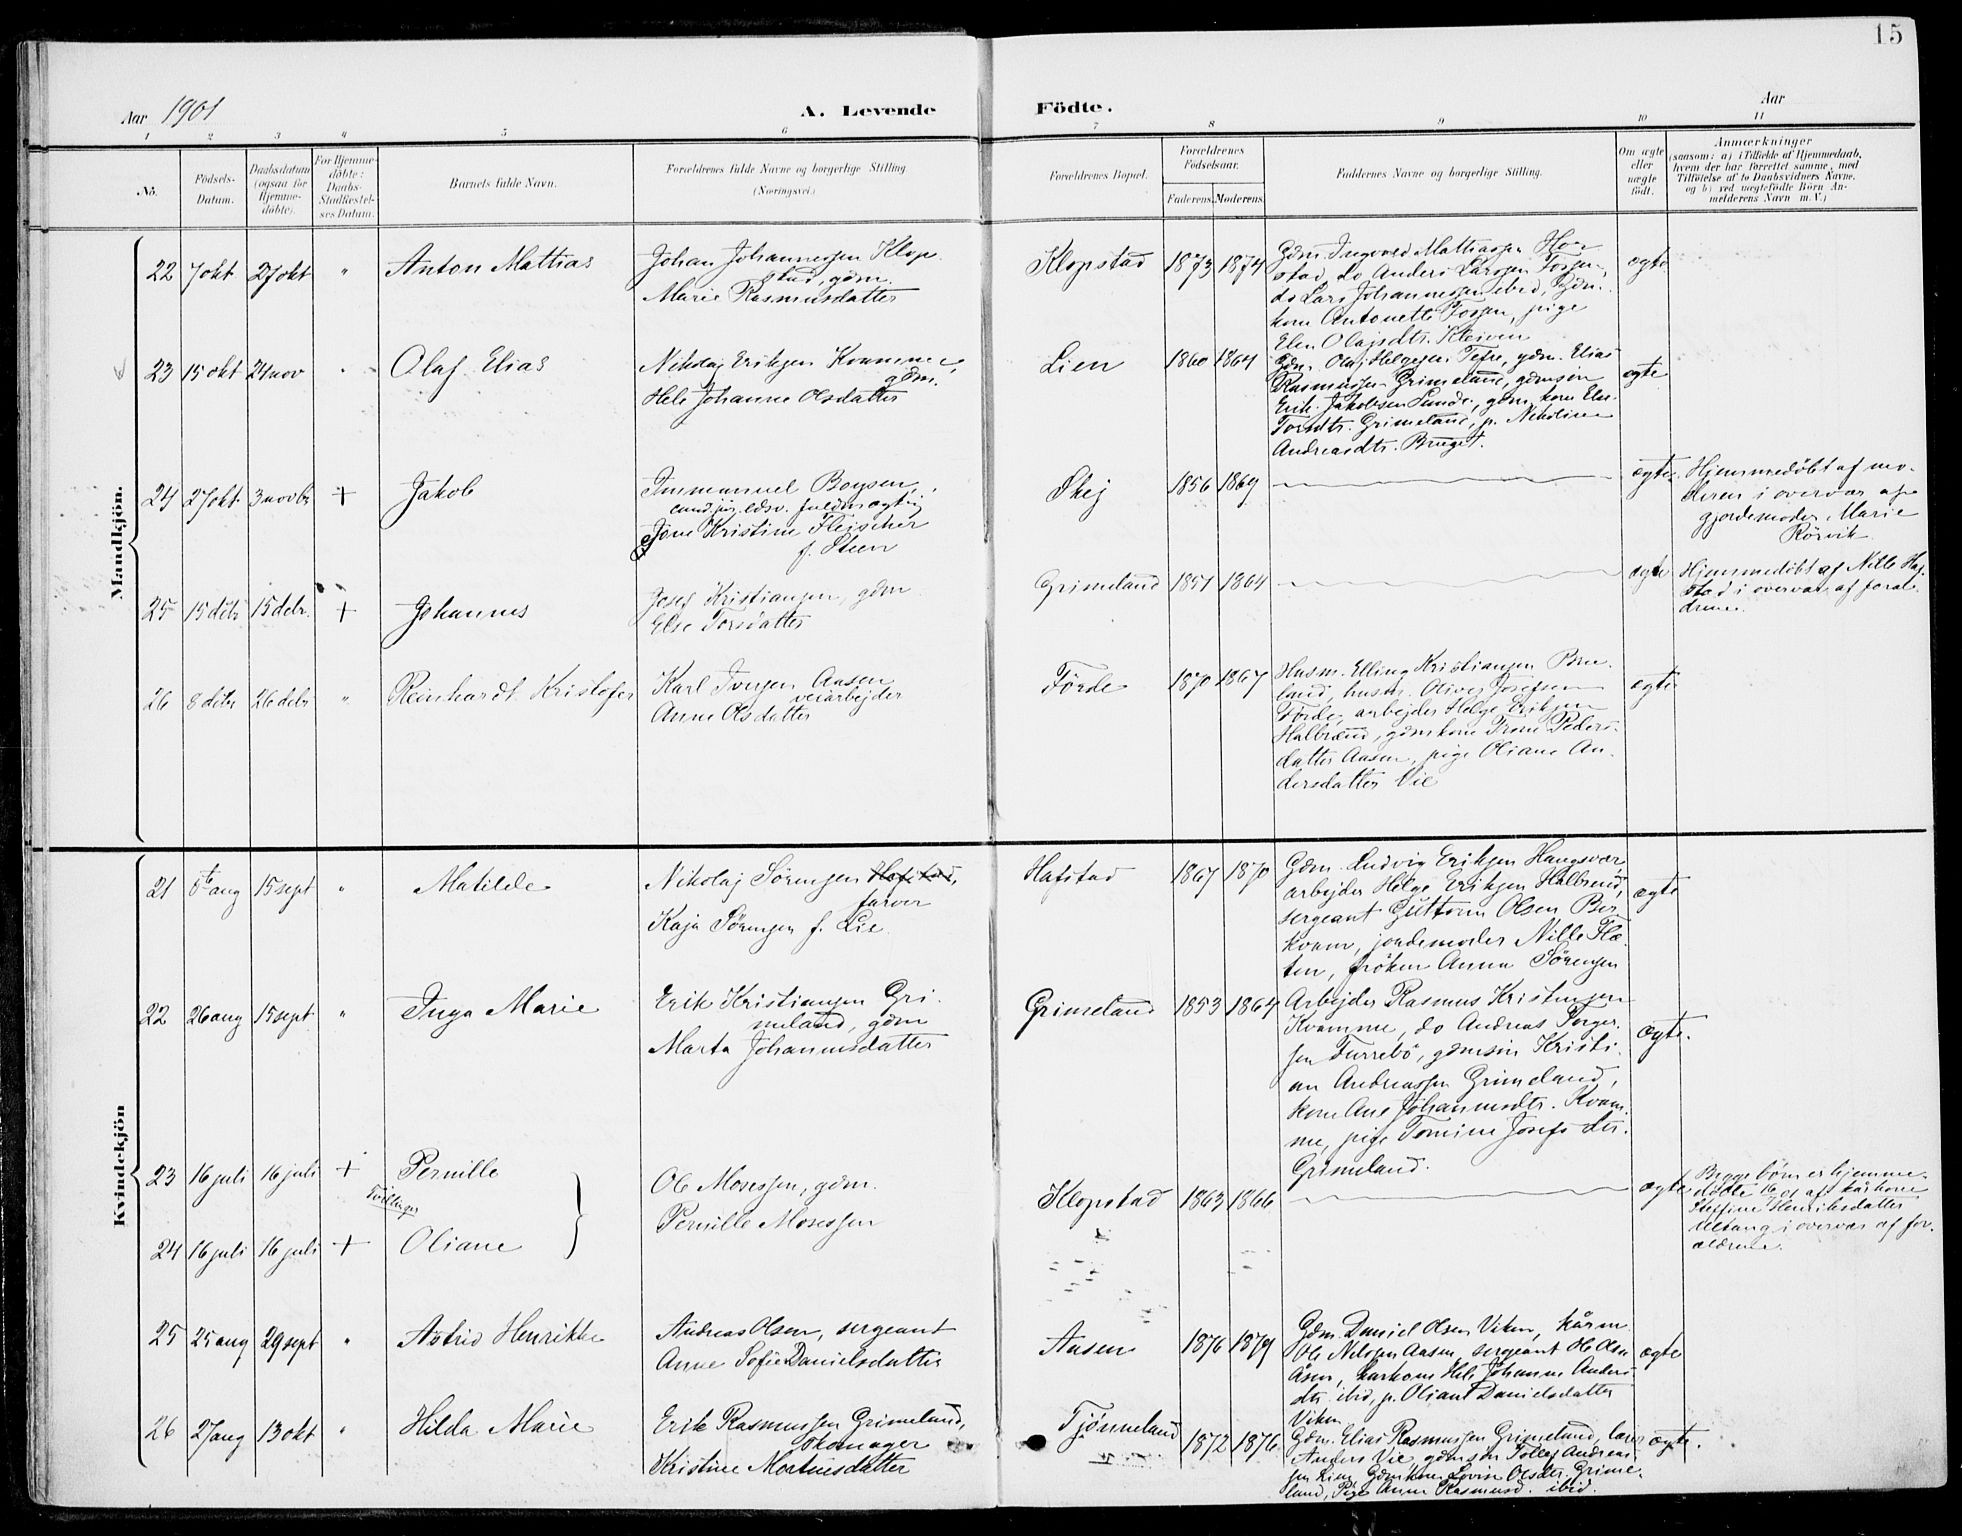 15
Aar 1901
A. Levende Födte.
Aar
1 2 3 4 5 6 7 8 9 10 11
No.
Födsels-
Datum.
Daabsdatum
(ogsaa for
Hjemme-
döbte).
For Hjemme-
döbte:
Daabs-
Stadfæstel-
ses Datum.
Barnets fulde Navn.
Forældrenes fulde Navne og borgerlige Stilling
(Næringsvei.)
Forældrenes Bopæl.
Forældrenes
Födselsaar.
Faderens. Moderens.
Faddernes Navne og borgerlige Stilling.
Om ægte
eller
uægte
födt.
Anmærkninger
(saasom: a) i Tilfælde af Hjemmedaab,
hvem der har forrettet samme, med
Tilföielse af to Daabsvidners Navne,
og b) ved uægtefödte Börn An-
melderens Navn m.V.)
Mandkjön.
22 7 okt 27 okt " Anton Mattias
Johan Johannessen Klop-
stad, gdm.
Marie Rasmusdatter
Klopstad 1873 1874
Gdm. Ingvald Mattiassen Ho-
stad, do Anders Larssen Fossen,
do Lars Johannessen ibid, Gdm.-
kone Antonette Fossen, pige
Elen Olajsdtr. Kleiven
ægte
23 15 okt 24 nov " Olaf Elias
Nikolaj Eriksen Kvamme,
gdm.
Hele Johanne Olsdatter
Lien 1860 1864
Gdm. Olaj Helgesen Tefre, gdm. Elias
Rasmussen Grimeland, gdmsøn
Erik Jakobsen Sunde, gdm.kone Else
Torsdtr. Grimeland, p. Nikoline
Andreasdtr. Bruget.
ægte
24 27 okt. 3 novbr + Jakob
Immanuel Boysen,
cand. jur. edsv. fuldmægtig
Jone Kristine Fleischer
f. Steen
Skej 1856 1869
ægte
Hjemmedøbt af mo-
deren i overvær af
gjordemoder Marie
Rörvik.
25 15 debr 15 debr. + Johannes
Josef Kristiansen, gdm
Else Torsdatter
Grimeland 1851 1864
ægte
Hjemmedøbt af Nille Haf-
stad i overvær af foræl-
drene.
26 8 debr 26 debr " Reinhardt Kristofer
Karl Iversen Aasen
veiarbejder
Anne Olsdatter
Förde 1870 1867
Husm. Elling Kristiansen Bru-
land, husm. Oliver Josefsen
Förde, arbejder Helge Eriksen
Halbrænd, gdmkone Trine Peders-
datter Aasen, pige Oliane An-
dersdatter Vie
ægte
Kvindekjön
21 5te aug 15 sept " Matilde
Nikolaj Sørensen Hafstad,
farver
Kaja Sørensen f. Lie
Hafstad 1867 1870
Gdm. Ludvig Eriksen Haugsvær
arbejder Helge Eriksen Halbrend,
sergeant Guttorm Olsen Ber-
kvam, jordemoder Nille Flæ-
ten, frøken Anna Sörensen
ægte
22 26 aug 15 sept. " Inga Marie
Erik Kristiansen Gri-
meland, gdm
Marta Johannesdatter
Grimeland 1853 1864
Arbejder Rasmus Kristensen
Kvamme, do Andreas Torger-
sen Furrebö, gdmsøn Kristi-
an Andreassen Grimeland,
kone Ane Johannesdtr. Kvam-
me, pige Tomine Josefsdtr.
Grimeland.
ægte.
23 16 juli 16 juli + Pernille
Tvillinger
Ole Mosessen, gdm.
Pernille Mosessen
Klopstad 1863 1866
ægte
Begge børn er hjemme-
døbte 16 ds af kårkone
Steffine Henriksdatter
i overvær af for-
ældrene.
24 16 juli 16 juli + Oliane
25 25 aug 29 sept " Astrid Henrikke
Andreas Olsen, sergeant
Anne Sofie Danielsdatter
Aasen 1876 1879
Gdm. Daniel Olsen Viken, kårm.
Ole Nilssen Aasen, sergeant Ole Olsen
Åsen, karkone Hele Johanne Anders-
dtr. ibid, p. Oliane Danielsdatter
Viken
ægte
26 27 aug 13 okt " Hilda Marie
Erik Rasmussen Grimeland,
skomager
Kristine Mortinesdatter
Tjønneland 1872 1876
Gdm. Elias Rasmussen Grimeland, lærer
Anders Vie, gdmsøn Tollef Andreas-
sen Lien, Gdmkone Lovise Olsdtr. Grime-
land, Pige Anna Rasmusd. ibid.
ægte.